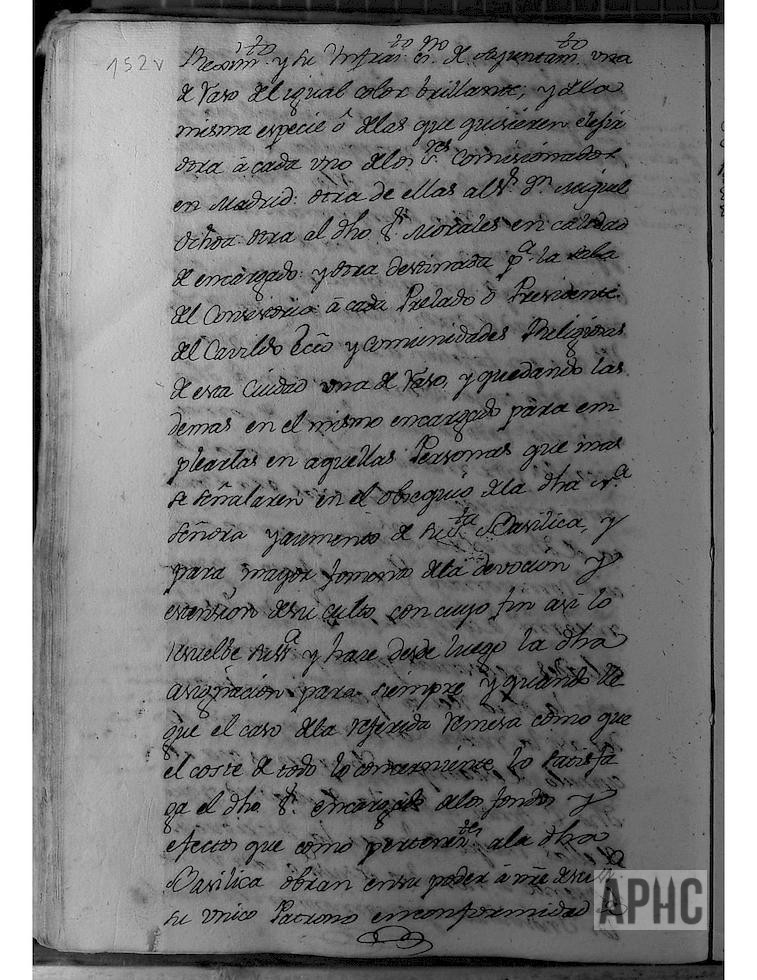 152v
Rexim.to y su Infraes.to no de Ayuntam.to una
de Vaso del igual color brillante, y de la
misma especie ô de las que quisieren elejir
otra â cada uno de los S.res Comisionados
en Madrid: otra de ellas al S.r D.n Miguel
Ochoa: otra al dho S.r Morales en calidad
de encargado: y otra destinada p.a la sala
del Consistorio: â cada Prelado ô Presidente
del Cavildo Ecco y Comunidades Religiosas
de esta Ciudad una de Vaso, y quedando las
demas en el mismo encargado para em
plearlas en aquellas Personas que mas
se señalaren en el obsequio de la dha N.a
Señora y aumento de su S.ta Basilica, y
para mayor fomento de la devocion y
extension de su culto, con cuyo fin asi lo
resuelbe y hace desde luego la dha
asignacion para siempre y quando lle
gue el caso de la referida remesa como que
el coste de todo lo concerniente, lo satisfa
ga el dho S.r encargado de los fondos y
efectos que como pertenen.tes a la dha
Basilica obran en su poder â
su Unico Patrono en conformidad
APHC